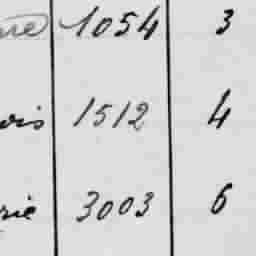 1054 3
ois 1512 4
rie 3003 6